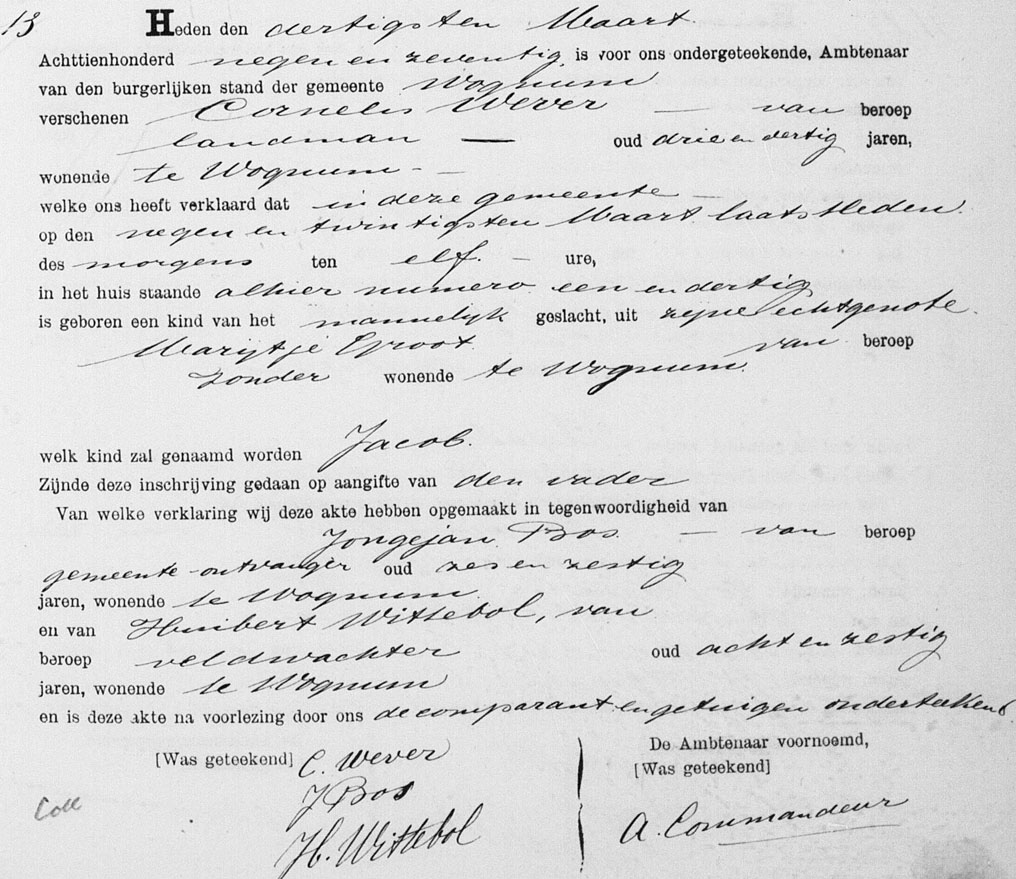 13 Heden den dertigsten Maart
Achttienhonderd negen en zeventig, is voor ons ondergeteekende, Ambtenaar
van den burgerlijken stand der gemeente Wognum
verschenen Cornelis Wever — van beroep
landman — oud drie en dertig jaren,
wonende te Wognum - -
welke ons heeft verklaard dat in deze gemeente -
op den negen en twintigsten Maart laatstleden.
des morgens ten elf. - ure,
in het huis staande alhier numero een en dertig
is geboren een kind van het mannelyk geslacht, uit zyne echtgenote.
Marijtje Groot. van beroep
zonder wonende te Wognum.
welk kind zal genaamd worden Jacob.
Zijnde deze inschrijving gedaan op aangifte van den vader
Van welke verklaring wij deze akte hebben opgemaakt in tegenwoordigheid van
Jongejan Bos. — van beroep
gemeente-ontvanger oud zes en zestig
jaren, wonende te Wognum
en van Huibert Wittebol, van
beroep veldwachter oud acht en zestig
jaren, wonende te Wognum
en is deze akte na voorlezing door ons de comparant en getuigen onderteekend
[Was geteekend] C. Wever
J Bos
H. Wittebol
De Ambtenaar voornoemd,
[Was geteekend]
A. Commandeur
Coll